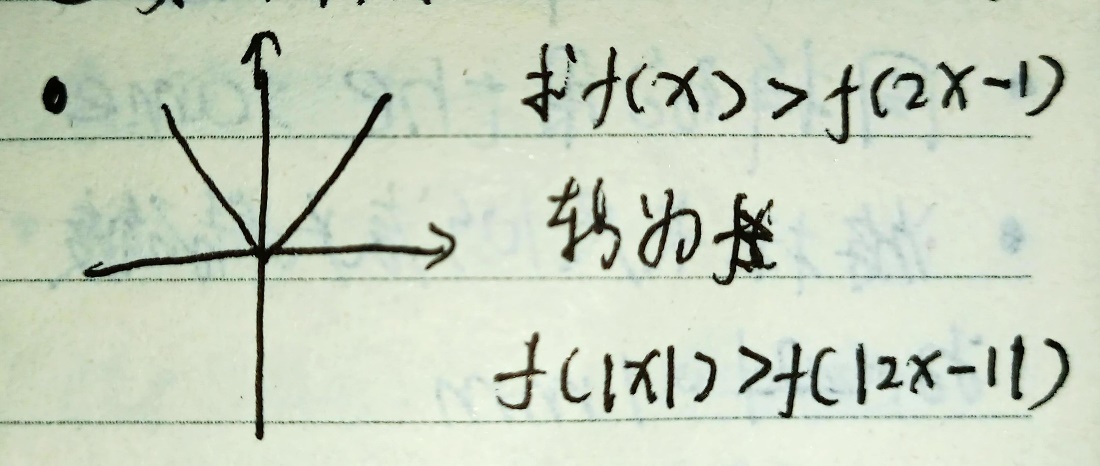 求f(x)>f(2x-1)
转为
f(|x|)>f(|2x-1|)